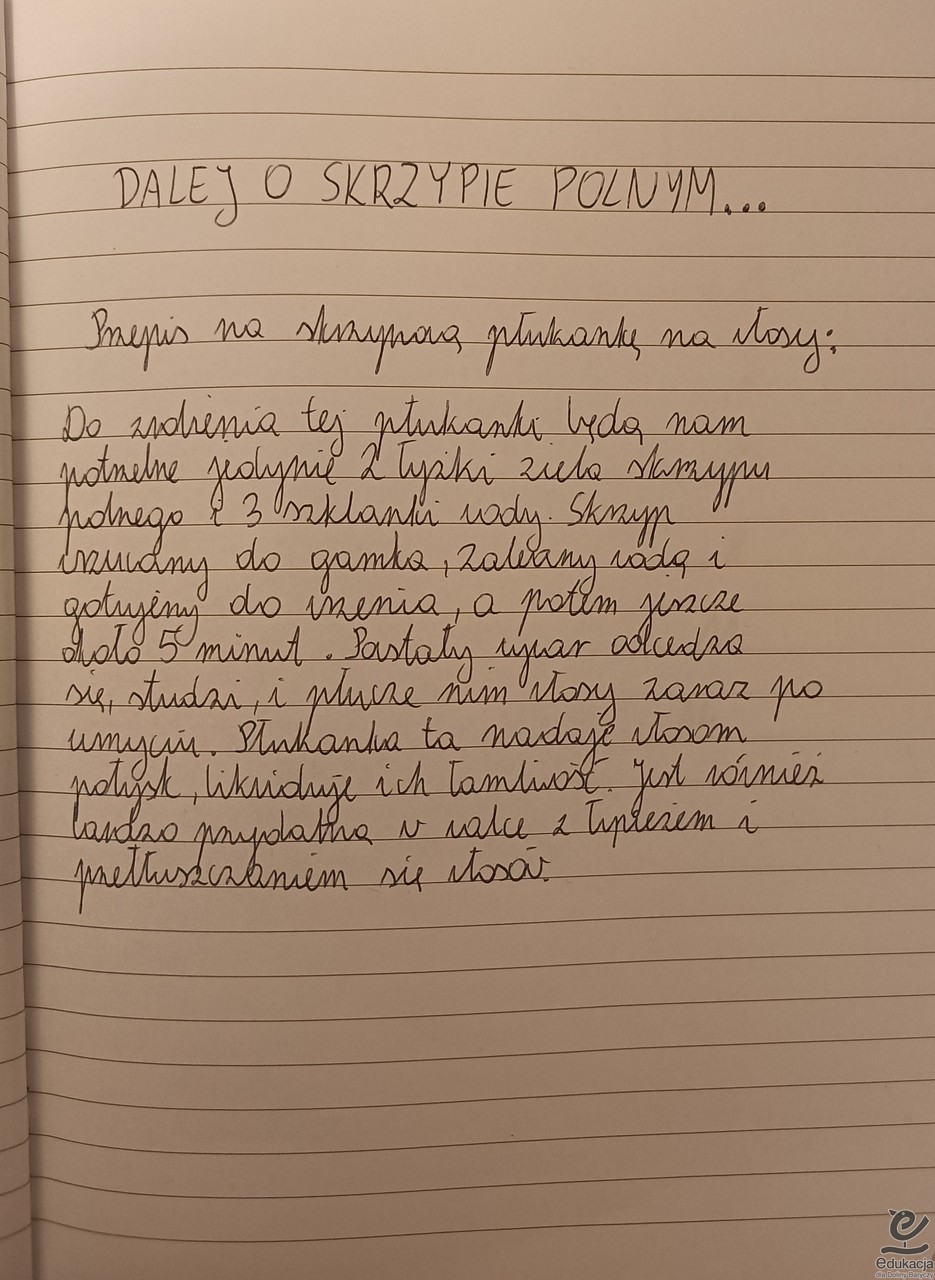 DALEJ O SKRZYPIE POLNYM...
Przepis na skrzypową płukankę na włosy:
Do zrobienia tej płukanki będą nam
potrzebne jedynie 2 łyżki ziela skrzypu
polnego i 3 szklanki wody. Skrzyp
wrzucamy do garnka, zalewamy wodą i
gotujemy do wrzenia, a potem jeszcze
około 5 minut. Powstały wywar odcedza
się, studzi, i płucze nim włosy zaraz po
umyciu. Płukanka ta nadaje włosom
połysk, likwiduje ich łamliwość. Jest również
bardzo przydatna w walce z łupieżem i
przetłuszczaniem się włosów.
edukacja
dla Doliny Baryczy